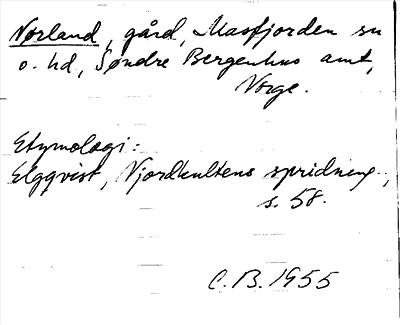 Nørland, gård, Masfjorden sn
o. hd, Søndre Bergenhus amt,
Norge.
Etymologi:
Elgqvist, Njordkultens spridning,
s. 58.
C.B. 1955